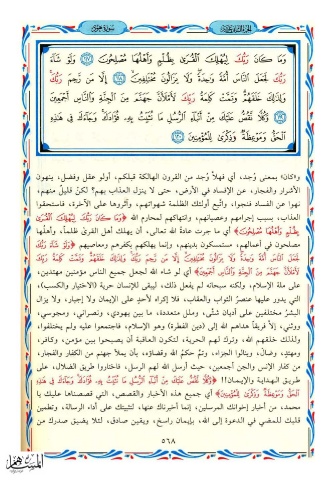 سورة هود
وَمَا كَانَ رَبُّكَ لِيُهْلِكَ الْقُرَىٰ بِظُلْمٍ وَأَهْلُهَا مُصْلِحُونَ ﴿١١٧﴾ وَلَوْ شَاءَ
رَبُّكَ لَجَعَلَ النَّاسَ أُمَّةً وَاحِدَةً وَلَا يَزَالُونَ مُخْتَلِفِينَ ﴿١١٨﴾ إِلَّا مَن رَّحِمَ رَبُّكَ
وَلِذَٰلِكَ خَلَقَهُمْ وَتَمَّتْ كَلِمَةُ رَبِّكَ لَأَمْلَأَنَّ جَهَنَّمَ مِنَ الْجِنَّةِ وَالنَّاسِ أَجْمَعِينَ
﴿١١٩﴾ وَكُلًّا نَّقُصُّ عَلَيْكَ مِنْ أَنبَاءِ الرُّسُلِ مَا نُثَبِّتُ بِهِ فُؤَادَكَ وَجَاءَكَ فِي هَٰذِهِ
الْحَقُّ وَمَوْعِظَةٌ وَذِكْرَىٰ لِلْمُؤْمِنِينَ ﴿١٢٠﴾
و«كان» بمعنى وُجد، أي فهلا وُجد من القرون الهالكة قبلكم، أولو عقل وفضل، ينهون
الأشرار والفجار، عن الإفساد في الأرض، حتى لا ينزل العذاب بهم؟ لكنْ قليلٌ منهم،
نهوا عن الفساد فنجوا، واتَّبع أولئك الظلمة شهواتهم، وآثروها على الآخرة، فاستحقوا
العذاب، بسبب إجرامهم وعصيانهم، وانتهاكهم لمحارم الله ﴿وَمَا كَانَ رَبُّكَ لِيُهْلِكَ الْقُرَىٰ
بِظُلْمٍ وَأَهْلُهَا مُصْلِحُونَ﴾ أي ما جرت عادة الله تعالى، أن يهلك أهل القرى ظلماً، وأهلها
مصلحون في أعمالهم، مستمسكون بدينهم، وإنما يهلكهم بكفرهم ومعاصيهم ﴿وَلَوْ شَاءَ رَبُّكَ
لَجَعَلَ النَّاسَ أُمَّةً وَاحِدَةً وَلَا يَزَالُونَ مُخْتَلِفِينَ إِلَّا مَن رَّحِمَ رَبُّكَ وَلِذَٰلِكَ خَلَقَهُمْ وَتَمَّتْ كَلِمَةُ رَبِّكَ
لَأَمْلَأَنَّ جَهَنَّمَ مِنَ الْجِنَّةِ وَالنَّاسِ أَجْمَعِينَ﴾ أي لو شاء الله لجعل جميع الناس مؤمنين مهتدين،
على ملة الإسلام، ولكنه سبحانه لم يفعل ذلك، ليبقى للإنسان حرية (الاختيار والكسب)،
التي يدور عليها عنصرُ الثواب والعقاب، فلا إكراه لأحدٍ على الإيمان ولا إجبار، ولا يزال
البشر مختلفين على أديان شتَّى، وملل متعددة، ما بين يهودي، ونصراني، ومجوسي،
ووثني، إلاَّ فريقاً هداهم الله إلى (دين الفطرة) وهو الإسلام، فاجتمعوا عليه ولم يختلفوا،
ولذلك خلقهم الله، وترك لهم الحرية، لتكون العاقبة أن يصبحوا بين مؤمن، وكافر،
ومهتدٍ، وضالّ، وينالوا الجزاء، وتمَّ حكمُ الله وقضاؤه، بأن يملأ جهنم من الكفار والفجار،
من كفار الإنس والجن أجمعين، حيث أرسل الله لهم الرسل، فاختاروا طريق الضلال، على
طريق الهداية والإيمان!! ﴿وَكُلًّا نَّقُصُّ عَلَيْكَ مِنْ أَنبَاءِ الرُّسُلِ مَا نُثَبِّتُ بِهِ فُؤَادَكَ وَجَاءَكَ فِي هَٰذِهِ
الْحَقُّ وَمَوْعِظَةٌ وَذِكْرَىٰ لِلْمُؤْمِنِينَ﴾ أي جميع هذه الأخبار والقصص، التي قصصناها عليك يا
محمد، من أخبار إخوانك المرسلين، إنما أخبرناك عنها، لتثبيتك على أداء الرسالة، وتطمين
قلبك للمضي في الدعوة إلى الله، بإيمان راسخ، ويقين صادق، لئلا يضيق صدرك من
٥٦٨